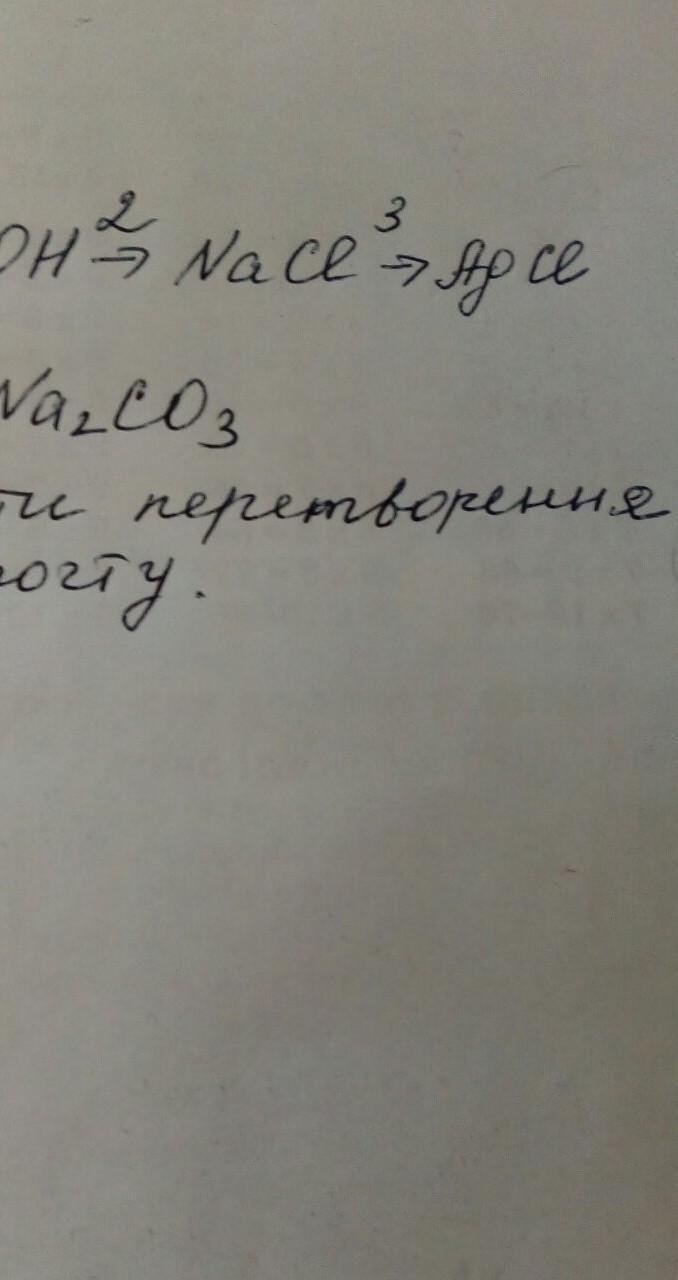 OH 2→ NaCl 3→ AgCl
Na₂CO₃
ти перетворення
росту.